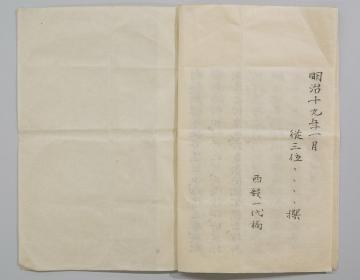 明治十九年一月
従三位、、、、撰
西毅一代稿